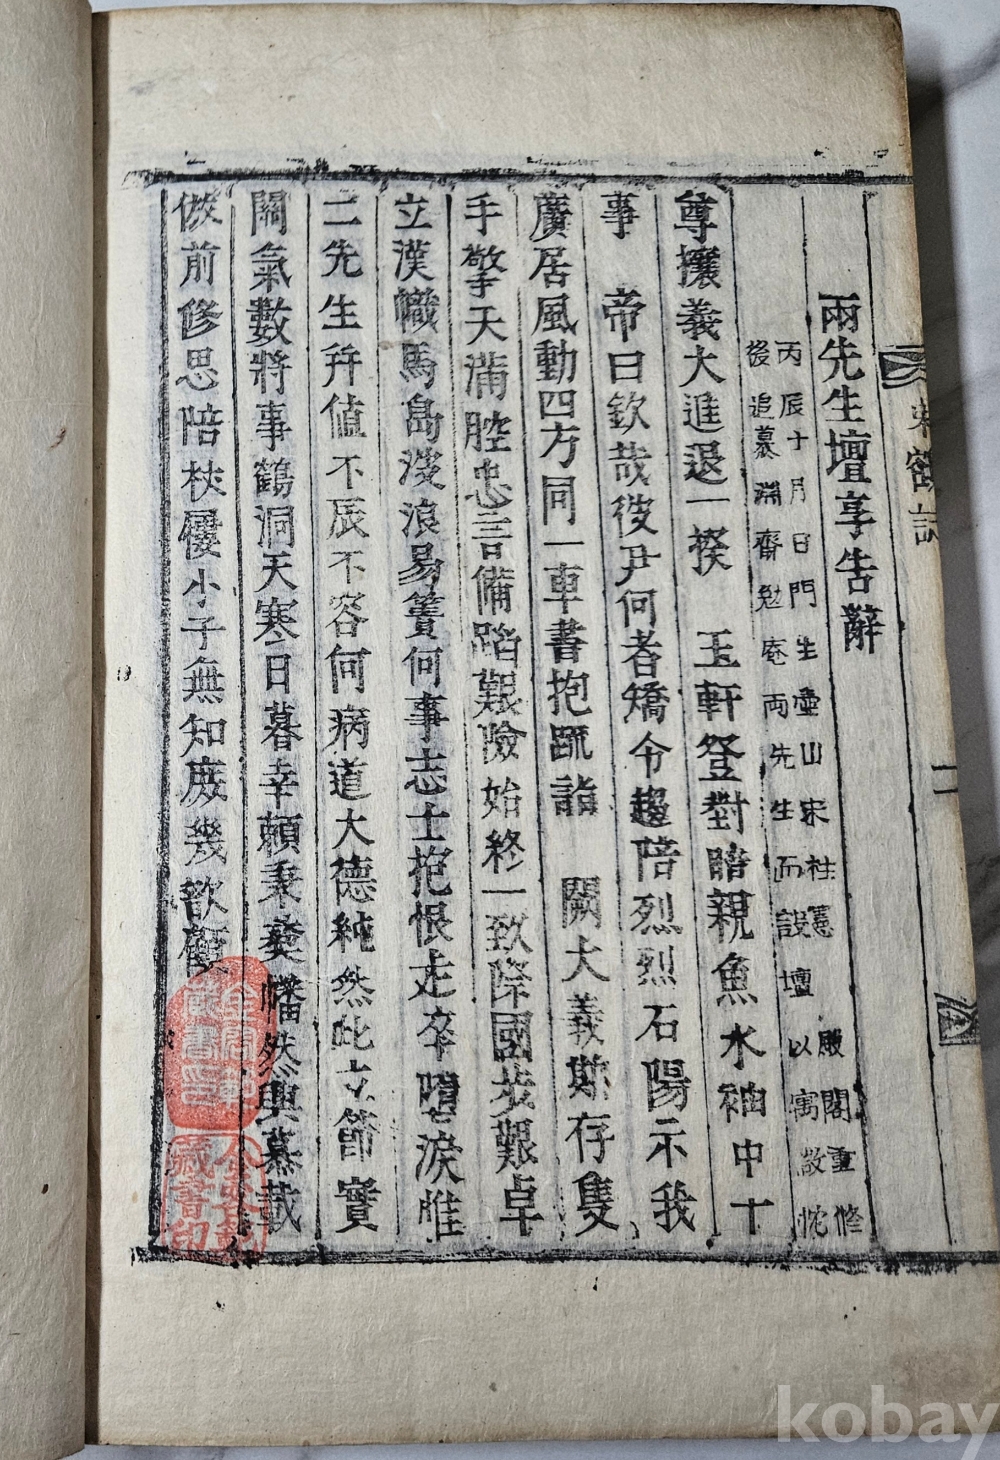 兩先生壇享告辭
丙辰十月日門生壺山宋柱憲殿閣重修
後追慕淵齋勉庵兩先生而設壇以寓敬忱
尊攘義大進退一揆　玉軒登對諳親魚水袖中十
事　帝曰欽哉彼尹何者矯令趨陪烈烈石陽示我
廣居風動四方同一車書抱疏詣　闕大義斯存隻
手擎天滿腔忠言備蹈艱險始終一致降國步艱卓
立漢幟馬島淩浪易簀何事志士抱恨走卒噎淚惟
二先生幷値不辰不容何病道大德純然此立節實
關氣數將事鶴洞天寒日暮幸賴秉彛幡然興慕載
倣前修思陪杖屨小子無知庶幾歆顧
二
藏書印
藏書印
kobay